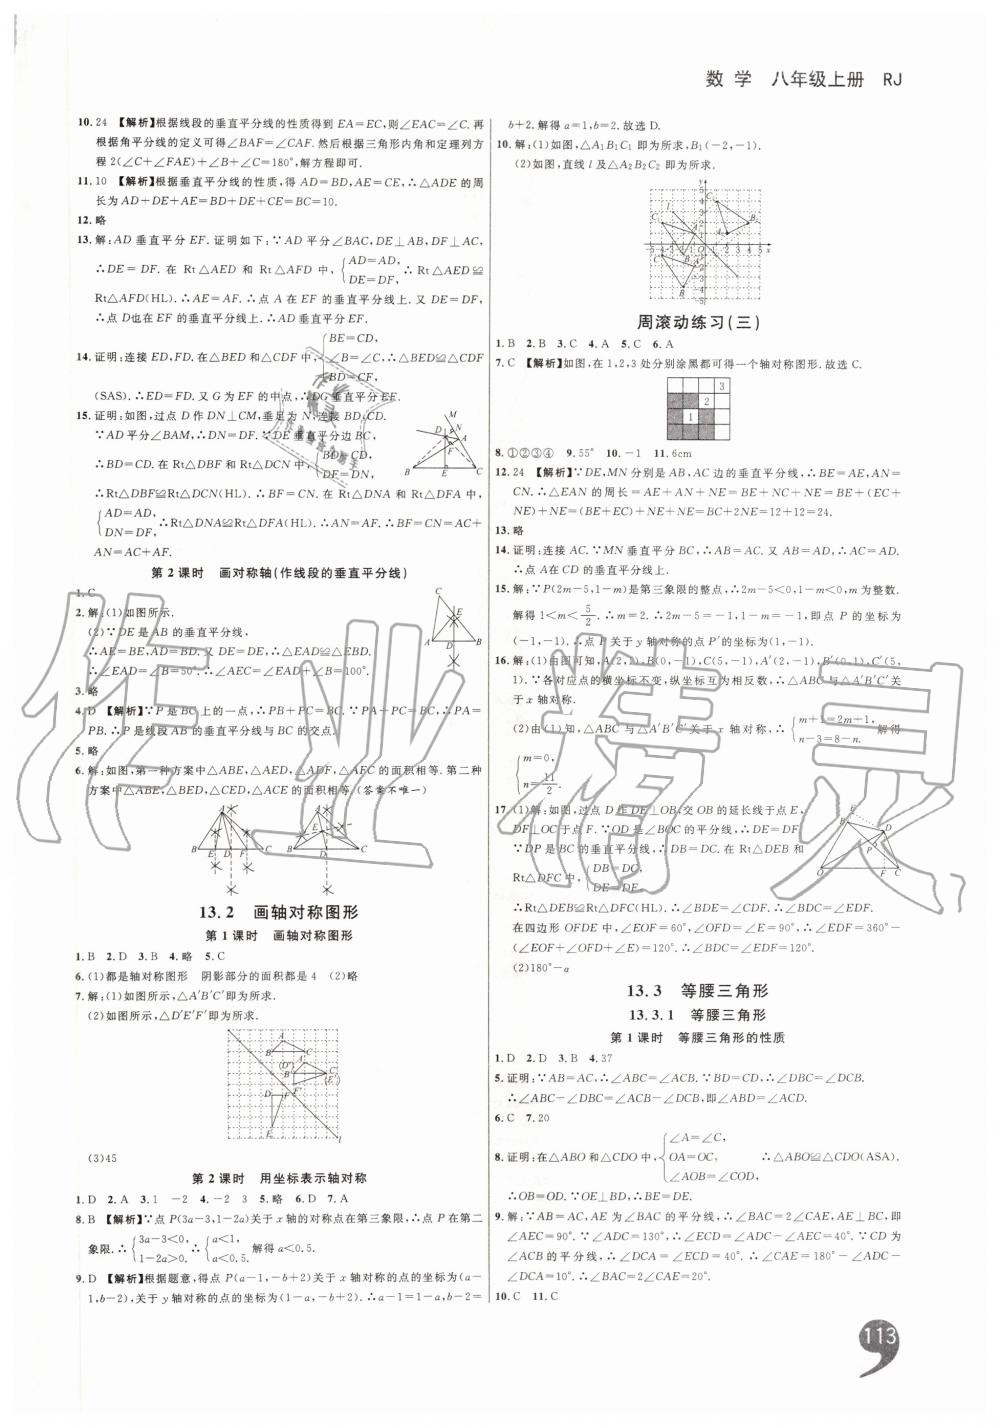 数学 八年级上册 RJ
10. 24 【解析】根据线段的垂直平分线的性质得到 EA=EC,则∠EAC=∠C. 再
根据角平分线的定义可得∠BAF=∠CAF. 然后根据三角形内角和定理列方
程 2(∠C+∠FAE)+∠B+∠C=180°,解方程即可.
11. 10 【解析】根据垂直平分线的性质,得 AD=BD,AE=CE,∴△ADE 的周
长为 AD+DE+AE=BD+DE+CE=BC=10.
12. 略
13. 解:AD 垂直平分 EF. 证明如下:∵AD 平分∠BAC,DE⊥AB,DF⊥AC,
∴DE=DF. 在 Rt△AED 和 Rt△AFD 中,{AD=AD, DE=DF, ∴Rt△AED≌
Rt△AFD(HL). ∴AE=AF. ∴点 A 在 EF 的垂直平分线上. 又 DE=DF,
∴点 D也在 EF 的垂直平分线上. ∴AD 垂直平分 EF.
14. 证明:连接 ED,FD. 在△BED 和△CDF 中,{BE=CD, ∠B=∠C, BD=CF, ∴△BED≌△CDF
(SAS). ∴DE=FD. 又 G 为 EF 的中点,∴DG 垂直平分 EF.
15. 证明:如图,过点 D 作 DN⊥CM,垂足为 N,连接 BD,CD.
∵AD 平分∠BAM,∴DN=DF. ∵DE 垂直平分边 BC,
∴BD=CD. 在 Rt△DBF 和 Rt△DCN 中,{BD=CD, DF=DN,
∴Rt△DBF≌Rt△DCN(HL). ∴BF=CN. 在 Rt△DNA 和 Rt△DFA 中,
{AD=AD, DN=DF, ∴Rt△DNA≌Rt△DFA(HL). ∴AN=AF. ∴BF=CN=AC+
AN=AC+AF.
第 2 课时 画对称轴(作线段的垂直平分线)
1. C
2. 解:(1)如图所示.
(2)∵DE 是 AB 的垂直平分线,
∴AE=BE,AD=BD. 又 DE=DE,∴△EAD≌△EBD.
∴∠EAD=∠B=50°. ∴∠AEC=∠EAD+∠B=100°.
3. 略
4. D 【解析】∵P 是 BC 上的一点,∴PB+PC=BC. ∵PA+PC=BC,∴PA=
PB. ∴P 是线段 AB 的垂直平分线与 BC 的交点.
5. 略
6. 解:如图,第一种方案中△ABE,△AED,△ADF,△AFC 的面积相等. 第二种
方案中△ABE,△BED,△CED,△ACE 的面积相等(答案不唯一)
13.2 画轴对称图形
第 1 课时 画轴对称图形
1. B 2. D 3. B 4. 略 5. C
6. (1)都是轴对称图形 阴影部分的面积都是 4 (2)略
7. 解:(1)如图所示,△A′B′C′即为所求.
(2)如图所示,△D′E′F′即为所求.
(3)45
第 2 课时 用坐标表示轴对称
1. D 2. A 3. 1 -2 4. -2 3 5. 略 6. D 7. A
8. B 【解析】∵点 P(3a-3,1-2a)关于 x 轴的对称点在第三象限,∴点 P 在第二
象限. ∴{3a-3<0, 1-2a>0. ∴{a<1, a<0.5. 解得 a<0.5.
9. D 【解析】根据题意,得点 P(a-1,-b+2)关于 x 轴对称的点的坐标为(a-
1,b-2),关于 y 轴对称的点的坐标为(1-a,-b+2). ∴a-1=1-a,b-2=-
b+2. 解得 a=1,b=2. 故选 D.
10. 解:(1)如图,△A₁B₁C₁ 即为所求,B₁(-2,-1).
(2)如图,直线 l 及△A₂B₂C₂ 即为所求.
周滚动练习(三)
1. B 2. B 3. C 4. A 5. C 6. A
7. C 【解析】如图,在 1,2,3 处分别涂黑都可得一个轴对称图形. 故选 C.
3
2
1
8. ①②③④ 9. 55° 10. -1 11. 6cm
12. 24 【解析】∵DE,MN 分别是 AB,AC 边的垂直平分线,∴AE=BE,AN=
CN. ∴△EAN 的周长=AE+AN+NE=BE+NC+NE=BE+BE+(EC+
NE)+NE=(BE+EC)+NE+NC+NE=BC+2NE=12+12=24.
13. 略
14. 证明:连接 AC. ∵MN 垂直平分 BC,∴AB=AC. 又 AB=AD,∴AC=AD.
∴点 A在 CD 的垂直平分线上.
15. 解:∵P(2m-5,1-m)是第三象限的整点,∴2m-5<0,1-m<0,m 为整数.
解得 1<m<5/2. ∴m=2. ∴2m-5=-1,1-m=-1,即点 P 的坐标为
(-1,-1). ∴点 P 关于 y 轴对称的点 P′的坐标为(1,-1).
16. 解:(1)由图可知,A(2,1),B(0,-1),C(5,-1),A′(2,-1),B′(0,1),C′(5,
1). ∵各对应点的横坐标不变,纵坐标互为相反数,∴△ABC 与△A′B′C′关
于 x 轴对称.
(2)由(1)知,△ABC 与△A′B′C′关于 x 轴对称,∴{m+1=2m+1, n-3=8-n. 解得
{m=0, n=11/2.
17. (1)解:如图,过点 D 作 DE⊥OB,交 OB 的延长线于点 E,
DF⊥OC 于点 F. ∵OD 是∠BOC 的平分线,∴DE=DF.
∵DP 是 BC 的垂直平分线,∴DB=DC. 在 Rt△DEB 和
Rt△DFC 中,{DB=DC, DE=DF,
∴Rt△DEB≌Rt△DFC(HL). ∴∠BDE=∠CDF. ∴∠BDC=∠EDF.
在四边形 OFDE 中,∠EOF=60°,∠OFD=∠E=90°,∴∠EDF=360°-
(∠EOF+∠OFD+∠E)=120°. ∴∠BDC=∠EDF=120°.
(2)180°-a
13.3 等腰三角形
13.3.1 等腰三角形
第 1 课时 等腰三角形的性质
1. D 2. D 3. B 4. 37
5. 证明:∵AB=AC,∴∠ABC=∠ACB. ∵BD=CD,∴∠DBC=∠DCB.
∴∠ABC-∠DBC=∠ACB-∠DCB,即∠ABD=∠ACD.
6. C 7. 20
8. 证明:在△ABO 和△CDO 中,{∠A=∠C, OA=OC, ∴△ABO≌△CDO(ASA).
∴OB=OD. ∵OE⊥BD,∴BE=DE.
9. 解:∵AB=AC,AE 为∠BAC 的平分线,∴∠BAC=2∠CAE,AE⊥BC,即
∠AEC=90°. ∵∠ADC=130°,∴∠ECD=∠ADC-∠AEC=40°. ∵CD 为
∠ACB 的平分线,∴∠DCA=∠ECD=40°. ∴∠CAE=180°-∠ADC-
∠DCA=10°. ∴∠BAC=2∠CAE=20°.
10. C 11. C
113
作业精灵